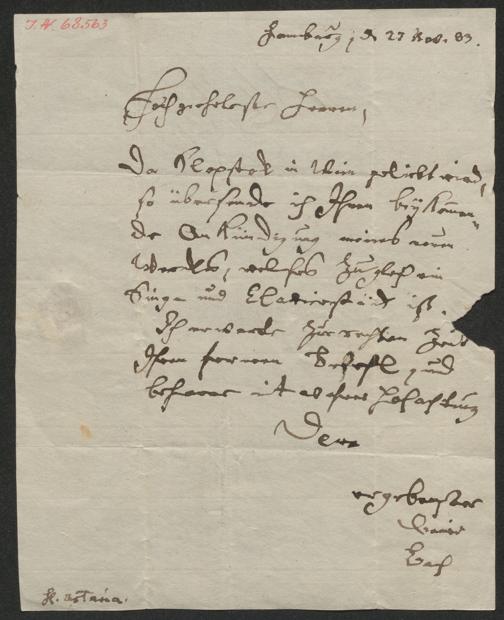 J.N. 68.563
Hamburg, d 27 Nov. 83.
Hochgeehrteste Herren,
Da Klopstok in Wien geliebt wird,
so übersende ich Ihnen beÿkommen-
de Ankündigung meines neuen
Werks, welches zugleich ein
Singe und Clavierstück ist.
Ich erwarte zur rechten Zeit
Ihren fernern Befehl, und
beharre mit wahrer Hochachtung
Dero
ergebenster
Diener
Bach